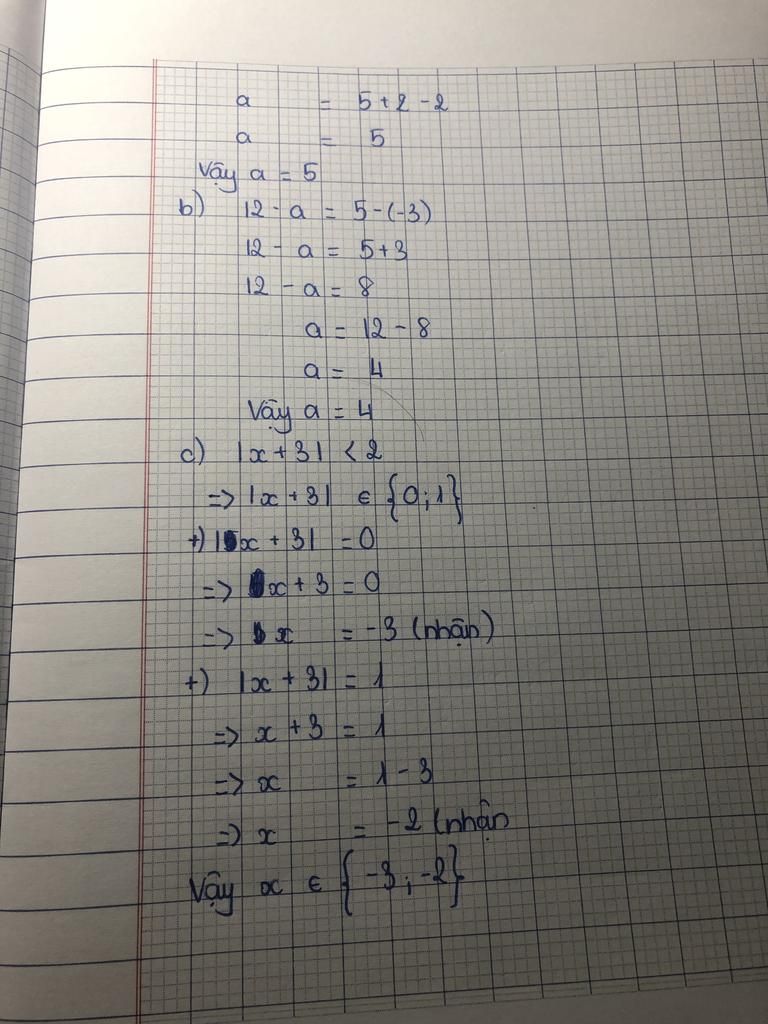 a = 5 + 2 - 2
a = 5
Vậy a = 5
b) 12 - a = 5 - (-3)
12 - a = 5 + 3
12 - a = 8
a = 12 - 8
a = 4
Vậy a = 4
c) |x + 3| < 2
=> |x + 3| ∈ {0; 1}
+) |x + 3| = 0
=> x + 3 = 0
=> x = -3 (nhận)
+) |x + 3| = 1
=> x + 3 = 1
=> x = 1 - 3
=> x = -2 (nhận
Vậy x ∈ {-3; -2}